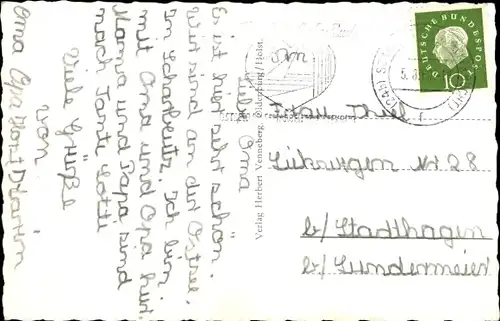 Liebe Oma
Es ist hier sehr schön.
Wir sind an der Ostsee.
In Scharbeutz. Ich bin
mit Oma und Opa hier.
Mama und Papa sind
nach Tante Lotte
Viele Grüße
von
Oma Opa
Verlag Herbert Venneberg Oldenburg/Holst.
DEUTSCHE BUNDESPOST
10
An
Frau Thiel
Lüdersfeld Nr 28
b/ Stadthagen
b/ Lundermeier